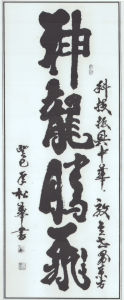 神龍騰飛
科技振興中華
癸巳年松華書